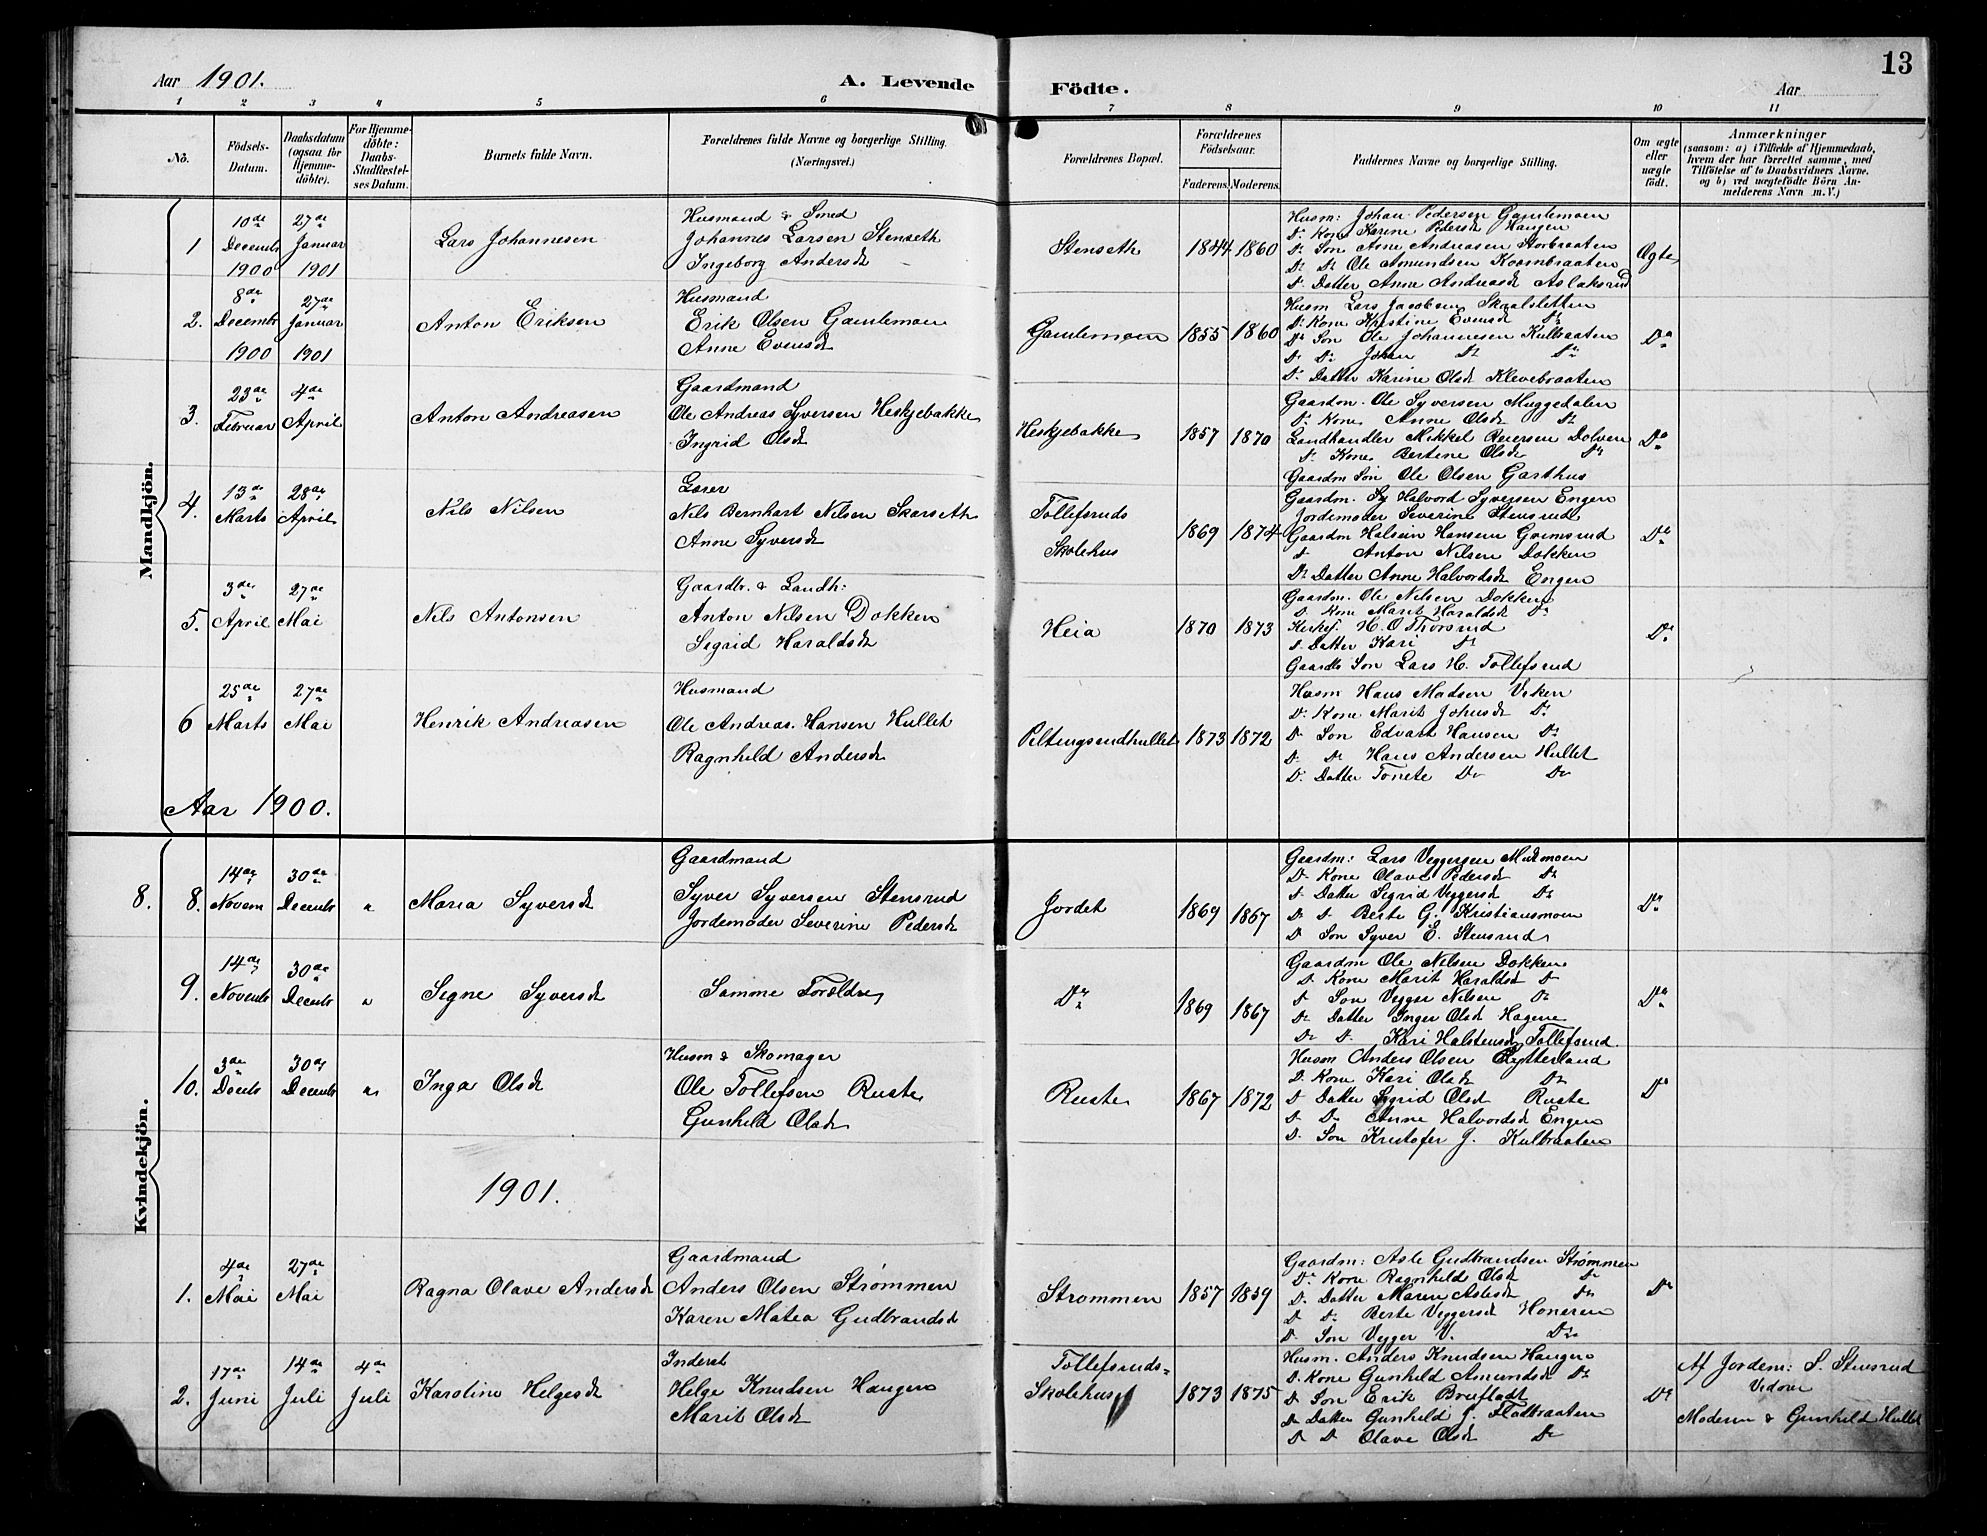 13
Aar 1901.
A. Levende Födte.
Aar
1 2 3 4 5 6 7 8 9 10 11
No.
Födsels-Datum.
Daabsdatum (ogsaa for Hjemme-döbte).
For Hjemme-döbte: Daabs-Stadfæstel-ses Datum.
Barnets fulde Navn.
Forældrenes fulde Navne og borgerlige Stilling. (Næringsvei.)
Forældrenes Bopæl.
Forældrenes Födselsaar.
Faderens. Moderens.
Faddernes Navne og borgerlige Stilling.
Om ægte eller uægte födt.
Anmærkninger
(saasom: a) i Tilfælde af Hjemmedaab,
hvem der har forrettet samme, med
Tilföielse af to Daabsvidners Navne.
og b) ved uægtefödte Börn An-
melderens Navn m. V.)
Mandkjön.
1
10de Decemb 1900
27de Januar 1901
Lars Johannesen
Husmand & Smed
Johannes Larsen Stenseth
Ingeborg Andersd
Stenseth
1844 1860
Husm: Johan Pedersen Gamlemoen
Do Kone Karine Pedersd Haugen
Do Søn Arne Andreasen Storbraaten
Do Do Ole Amundsen Kombraaten
Do Datter Anne Andreasd Aslaksrud
Ægte
2.
8de Decembr 1900
27de Januar 1901
Anton Eriksen
Husmand
Erik Olsen Gamlemoen
Anne Evensd
Gamlemoen
1855 1860
Husm Lars Jacobsen Skaalsletten
Do Kone Kristine Evensd Do
Do Søn Ole Johannesen Kulbraaten
Do Do Johan Do Do
Do Datter Karine Olsd Klevebraaten
Do
3.
23de Februar
4de April
Anton Andreasen
Gaardmand
Ole Andreas Syversen Heskjebakke
Ingrid Olsd
Heskjebakke
1857 1870
Gaardm. Ole Syversen Muggedalen
Do Kone Anne Olsd Do
Landhandler Mikkel Reiersen Dolven
Do Kone Bertine Olsd Do
Gaardm Søn Ole Olsen Garthus
Do
4.
13de Marts
28de April
Nils Nilsen
Lærer
Nils Bernhart Nilsen Skarseth
Anne Syversd
Tollefsruds
Skolehus
1869 1874
Gaardm. Halvord Syversen Engen
Jordemoder Severine Stensrud
Gaardm Halsten Hansen Grimsrud
Do Anton Nilsen Dokken
Do Datter Anne Halvordsd Engen
Do
5.
3de April
27de Mai
Nils Antonsen
Gaardbr. & Landh:
Anton Nilsen Dokken
Sigrid Haraldsd
Heia
1870 1873
Gaardm. Ole Nilsen Dokken
Do Kone Marit Haraldsd Do
Kirkes. H. O Thorsrud
Do Datter Kari Do
Gaardb Søn Lars H. Tollefsrud
Do
6
25de Marts
27de Mai
Henrik Andreasen
Husmand
Ole Andreas Hansen Hullet
Ragnhild Andersd
Piltingsrudhullet
1873 1872
Husm Hans Madsen Viken
Do Kone Marit Johnsd Do
Do Søn Edvart Hansen Do
Do Do Hans Andersen Hullet
Do Datter Tonete Do Do
Aar 1900.
Kvindekjön.
8.
8.
14de Novem
30de Decemb
"
Maria Syversd
Gaardmand
Syver Syversen Stensrud
Jordemoder Severine Pedersd
Jordet
1869 1867
Gaardm: Lars Veggersen Midtmoen
Do Kone Olave Pedersd Do
Do Datter Sigrid Veggersd Do
Do Do Berte G. Kristiansmoen
Do Søn Syver E. Stensrud
Do
9.
14de Novemb
30de Decemb
"
Signe Syversd
Samme Forældre
Do
1869 1867
Gaardm Ole Nilsen Dokken
Do Kone Marit Haraldsd Do
Do Søn Vegger Nilsen Do
Do Datter Inger Olsd Hagene
Do Do Kari Halstensd Tollefsrud
Do
10.
3de Decemb
30de Decemb
"
Inga Olsd
Husm & Skomager
Ole Tollefsen Ruste
Gunhild Olsd
Ruste
1867 1872
Husm Anders Olsen Lytterland
Do Kone Kari Olsd Do
Do Datter Sigrid Olsd Ruste
Do Do Anne Halvordsd Engen
Do Søn Kristofer J. Kulbraaten
Do
1901.
1.
4de Mai
27de Mai
Ragna Olave Andersd
Gaardmand
Anders Olsen Strømmen
Karen Matea Gudbrandsd
Strommen
1857 1859
Gaardm: Asle Gudbrandsen Strømmen
Do Kone Ragnhild Olsd Do
Do Datter Maren Aslesd Do
Do Do Berte Veggersd Honeren
Do Søn Vegger V. Do
Do
2.
17de Juni
14de Juli
4de Juli
Karoline Helgesd
Inderst
Helge Knudsen Haugen
Marit Olsd
Tollefsruds-
Skolehus
1873 1875
Husm. Anders Knudsen Haugen
Do Kone Gunhild Amundsd Do
Do Søn Erik Brufladt
Do Datter Gunhild J. Flatbraaten
Do Do Olave Olsd Do
Do
Af Jordem: S. Stensrud
Vidner
Moderen & Gunhild Hullet